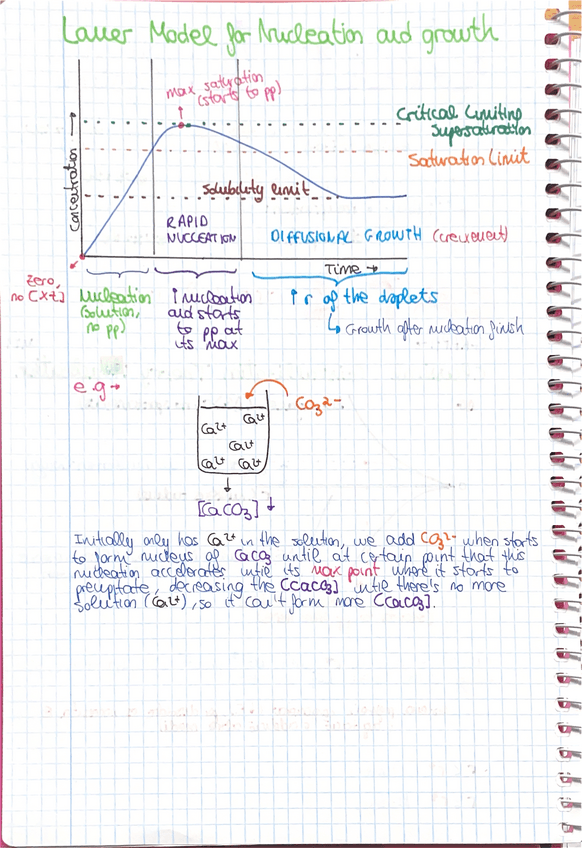 Lamer Model for Nucleation and growth
max saturation
(starts to pp)
Critical limiting
supersaturation
Saturation Limit
Concentration →
Solubility limit
RAPID
NUCLEATION
DIFFUSIONAL GROWTH (creixement)
Time →
Zero,
no [xt]
Nucleation
(solution,
no pp)
↑ nucleation
and starts
to pp at
its max
↑ r of the droplets
↳ Growth after nucleation finish
e.g →
CO₃²⁻
Ca²⁺
Ca²⁺
Ca²⁺
Ca²⁺ Ca²⁺
↓
[CaCO₃] ↓
Initially only has Ca²⁺ in the solution, we add CO₃²⁻ when starts
to form nucleus of CaCO₃ until at certain point that this
nucleation accelerates until its max point where it starts to
precipitate, decreasing the [CaCO₃] until there's no more
solution (Ca²⁺), so it can't form more [CaCO₃].